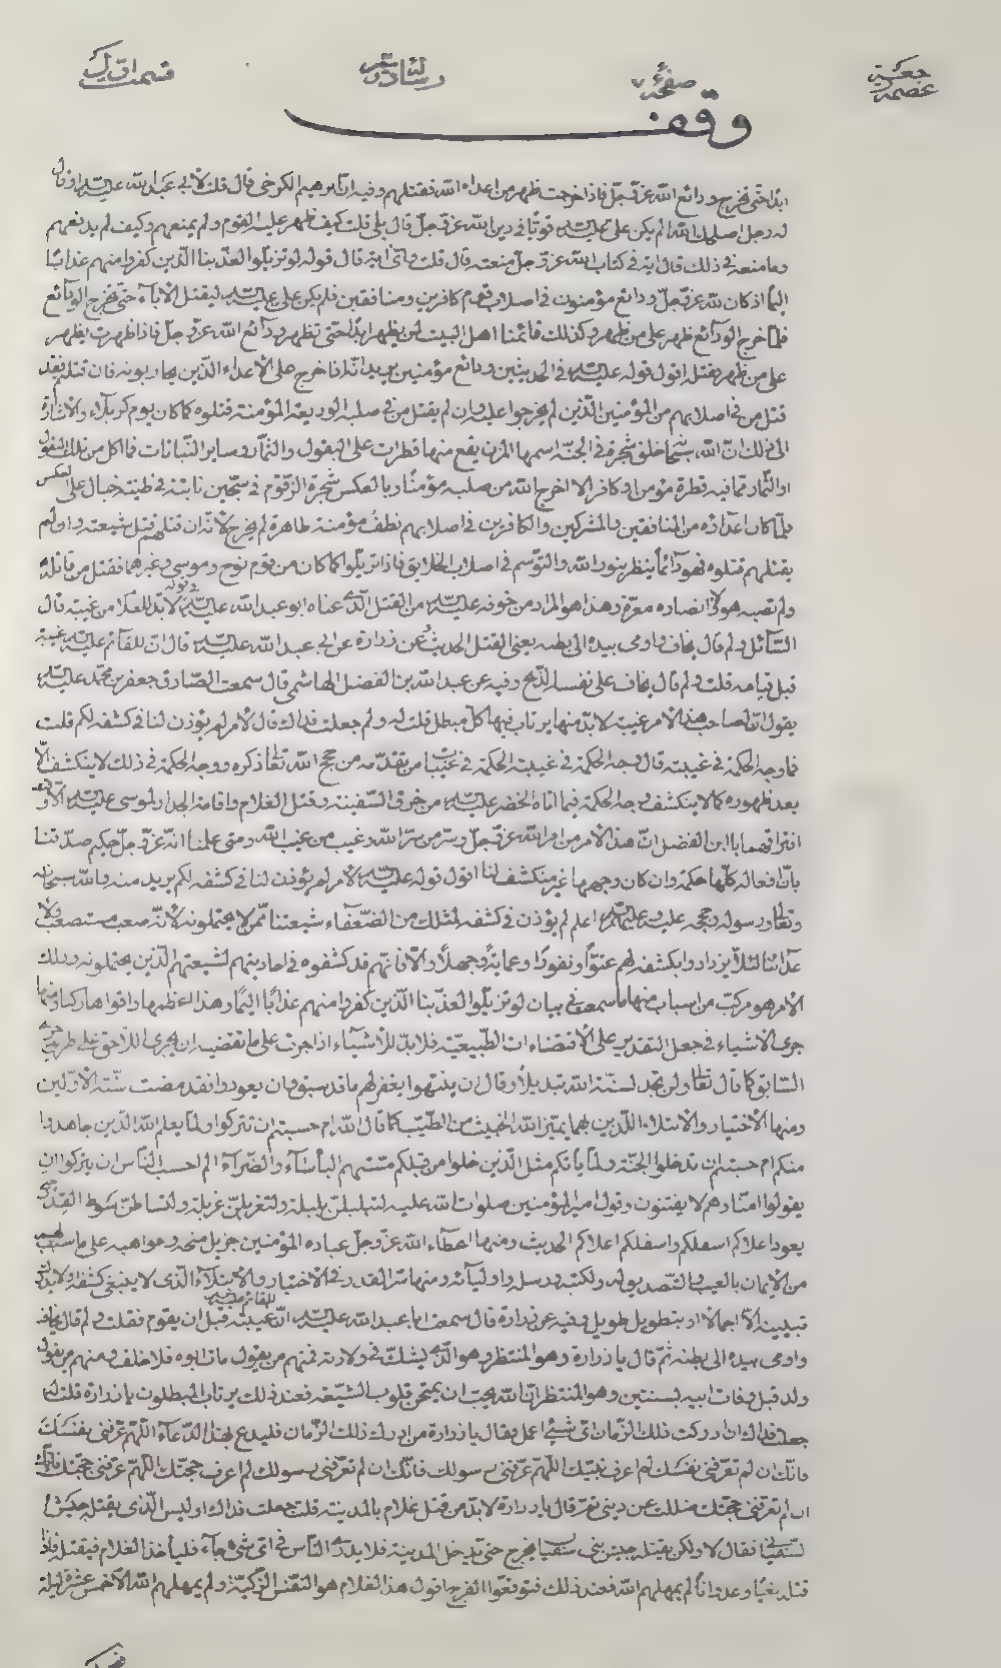 صفحة ٧
وقف
ابدا حتى تخرج ودائع الله عز وجل فاذا خرجت ظهر من اعداء الله فقتلهم وفيه ابراهيم الكرخي قال قلت لابي عبد الله عليه السلام او قال
له رجل اصلحك الله الم يكن علي عليه السلام قويا في دين الله عز وجل قال بلى قلت كيف ظهر عليه القوم ولم يمنعهم وكيف لم يدفعهم
وما منعه في ذلك قال اية في كتاب الله عز وجل منعته قال قلت واي اية قال قوله لو تزيلوا لعذبنا الذين كفروا منهم عذابا
اليما اذ كان لله عز وجل ودائع مؤمنون في اصلاب قوم كافرين ومنافقين فلم يكن علي عليه السلام ليقتل الاباء حتى تخرج الودائع
فلما خرج الودائع ظهر على من ظهر وكذلك قائمنا اهل البيت لن يظهر ابدا حتى تظهر ودائع الله عز وجل فاذا ظهرت يظهر
على من ظهر يقتله اقول قوله عليه السلام في الحديثين ودائع مؤمنين يريد انه اذا خرج على الاعداء الذين يحاربونه فان قتلهم فقد
قتل من في اصلابهم من المؤمنين الذين لم يخرجوا عليه وان لم يقتل من في صلبه الوديعة المؤمنة قتلوه كما كان يوم كربلاء والاشارة
الى ذلك ان الله سبحانه خلق شجرة في الجنة اسمها المزن يقع منها قطرات على البقول والثمار وساير النباتات فما اكل من تلك البقول
او الثمار مما فيه قطرة مؤمن او كافر الا اخرج الله من صلبه مؤمنا وبالعكس شجرة الزقوم في سجين نابتة في طينة خبال على العكس
فلما كان اعداؤه من المنافقين والمشركين والكافرين في اصلابهم نطف مؤمنة طاهرة لم يخرج لانه ان قتلهم قتل شيعته وان لم
يقتلهم قتلوه فهو دائما ينظر بنور الله والتوسم في اصلاب الخلايق فاذا تزيلوا كما كان من قوم نوح وموسى وغيرهما فقتل من قاتله
ولم تصبه هو ولا انصاره معرة وهذا هو المراد من خوفه عليه السلام من القتل الذي عناه ابو عبد الله عليه السلام في قوله لا بد للغلام من غيبة قال
السائل ولم قال يخاف واومى بيده الى بطنه يعني القتل الحديث عن زرارة عن ابي عبد الله عليه السلام قال ان للقائم عليه السلام غيبة
قبل قيامه قلت ولم قال يخاف على نفسه الذبح وفيه عن عبد الله بن الفضل الهاشمي قال سمعت الصادق جعفر بن محمد عليه السلام
يقول ان لصاحب هذا الامر غيبة لا بد منها يرتاب فيها كل مبطل قلت له ولم جعلت فداك قال لامر لم يؤذن لنا في كشفه لكم قلت
فما وجه الحكمة في غيبته قال وجه الحكمة في غيبته الحكمة في غيبات من تقدمه من حجج الله تعالى ذكره ووجه الحكمة في ذلك لا ينكشف الا
بعد ظهوره كما لا ينكشف وجه الحكمة فيما اتاه الخضر عليه السلام من خرق السفينة وقتل الغلام واقامة الجدار لموسى عليه السلام الا وقت
افتراقهما يا ابن الفضل ان هذا الامر من امر الله عز وجل وسر من سر الله وغيب من غيب الله ومتى علمنا انه عز وجل حكيم صدقنا
بان افعاله كلها حكمة وان كان وجهها غير منكشف لنا اقول قوله عليه السلام لامر لم يؤذن لنا في كشفه لكم يريد منه والله سبحانه
وتعالى ورسوله وحججه عليه وعليهم السلام اعلم لم يؤذن في كشفه لمثلك من الضعفاء شيعتنا ممن لا يحتملونه لانه صعب مستصعب ولا
عدائنا لئلا يزدادوا بكشفه لهم عتوا ونفورا وعماية وجهلا والا فانهم قد كشفوه في احاديثهم لشيعتهم الذين يحتملونه وذلك
الامر هو مركب من اسباب منها ما سمعت في بيان لو تزيلوا لعذبنا الذين كفروا منهم عذابا اليما وهذا اعظمها واقواها ركنا ومنها
جري الاشياء في جعل التقدير على الاقتضاءات الطبيعية فلا بد للاشياء اذا جرت على ما تقتضيه ان يجري اللاحق على طريق
السابق كما قال تعالى ولن تجد لسنة الله تبديلا وقال ان ينتهوا يغفر لهم ما قد سبق وان يعودوا فقد مضت سنة الاولين
ومنها الاختيار والابتلاء اللذين بهما يميز الله الخبيث من الطيب كما قال الله ام حسبتم ان تتركوا ولما يعلم الله الذين جاهدوا
منكم ام حسبتم ان تدخلوا الجنة ولما يأتكم مثل الذين خلوا من قبلكم مستهم البأساء والضراء الم احسب الناس ان يتركوا ان
يقولوا امنا وهم لا يفتنون وقول امير المؤمنين صلوات الله عليه لتبلبلن بلبلة ولتغربلن غربلة ولتساطن سوط القدر حتى
يعود اعلاكم اسفلكم واسفلكم اعلاكم الحديث ومنها اعطاء الله عز وجل عباده المؤمنين جزيل منحه ومواهبه على ما سبق لهم
من الايمان بالغيب والتصديق له ولكتبه ورسله واوليائه ومنها سر القدر في الاختيار والابتلاء الذي لا ينبغي كشفه ولا يمكن
تبيينه الا اجمالا او بتطويل طويل وفيه عن زرارة قال سمعت ابا عبد الله عليه السلام ان للقائم غيبة قبل ان يقوم فقلت ولم قال يخاف
واومى بيده الى بطنه ثم قال يا زرارة وهو المنتظر وهو الذي يشك في ولادته فمنهم من يقول مات ابوه فلا خلف ومنهم من يقول
ولد قبل وفات ابيه بسنتين وهو المنتظر ان الله يحب ان يمتحن قلوب الشيعة فعند ذلك يرتاب المبطلون يا زرارة قلت له
جعلت فداك ان ادركت ذلك الزمان اي شيء اعمل فقال يا زرارة من ادرك ذلك الزمان فليدع بهذا الدعاء اللهم عرفني نفسك
فانك ان لم تعرفني نفسك لم اعرف نبيك اللهم عرفني رسولك فانك ان لم تعرفني رسولك لم اعرف حجتك اللهم عرفني حجتك فانك
ان لم تعرفني حجتك ضللت عن ديني ثم قال يا زرارة لا بد من قتل غلام بالمدينة قلت جعلت فداك اوليس الذي يقتله جيش
السفياني فقال لا ولكن يقتله جيش بني يخرج حتى يدخل المدينة فلا يدري الناس في اي شيء جاء فيأخذ الغلام فيقتله فاذا
قتله بغيا وعدوانا لم يمهلهم الله فعند ذلك فتوقعوا الفرج اقول هذا الغلام هو النفس الزكية ولم يمهلهم الله الا خمس عشرة ليلة